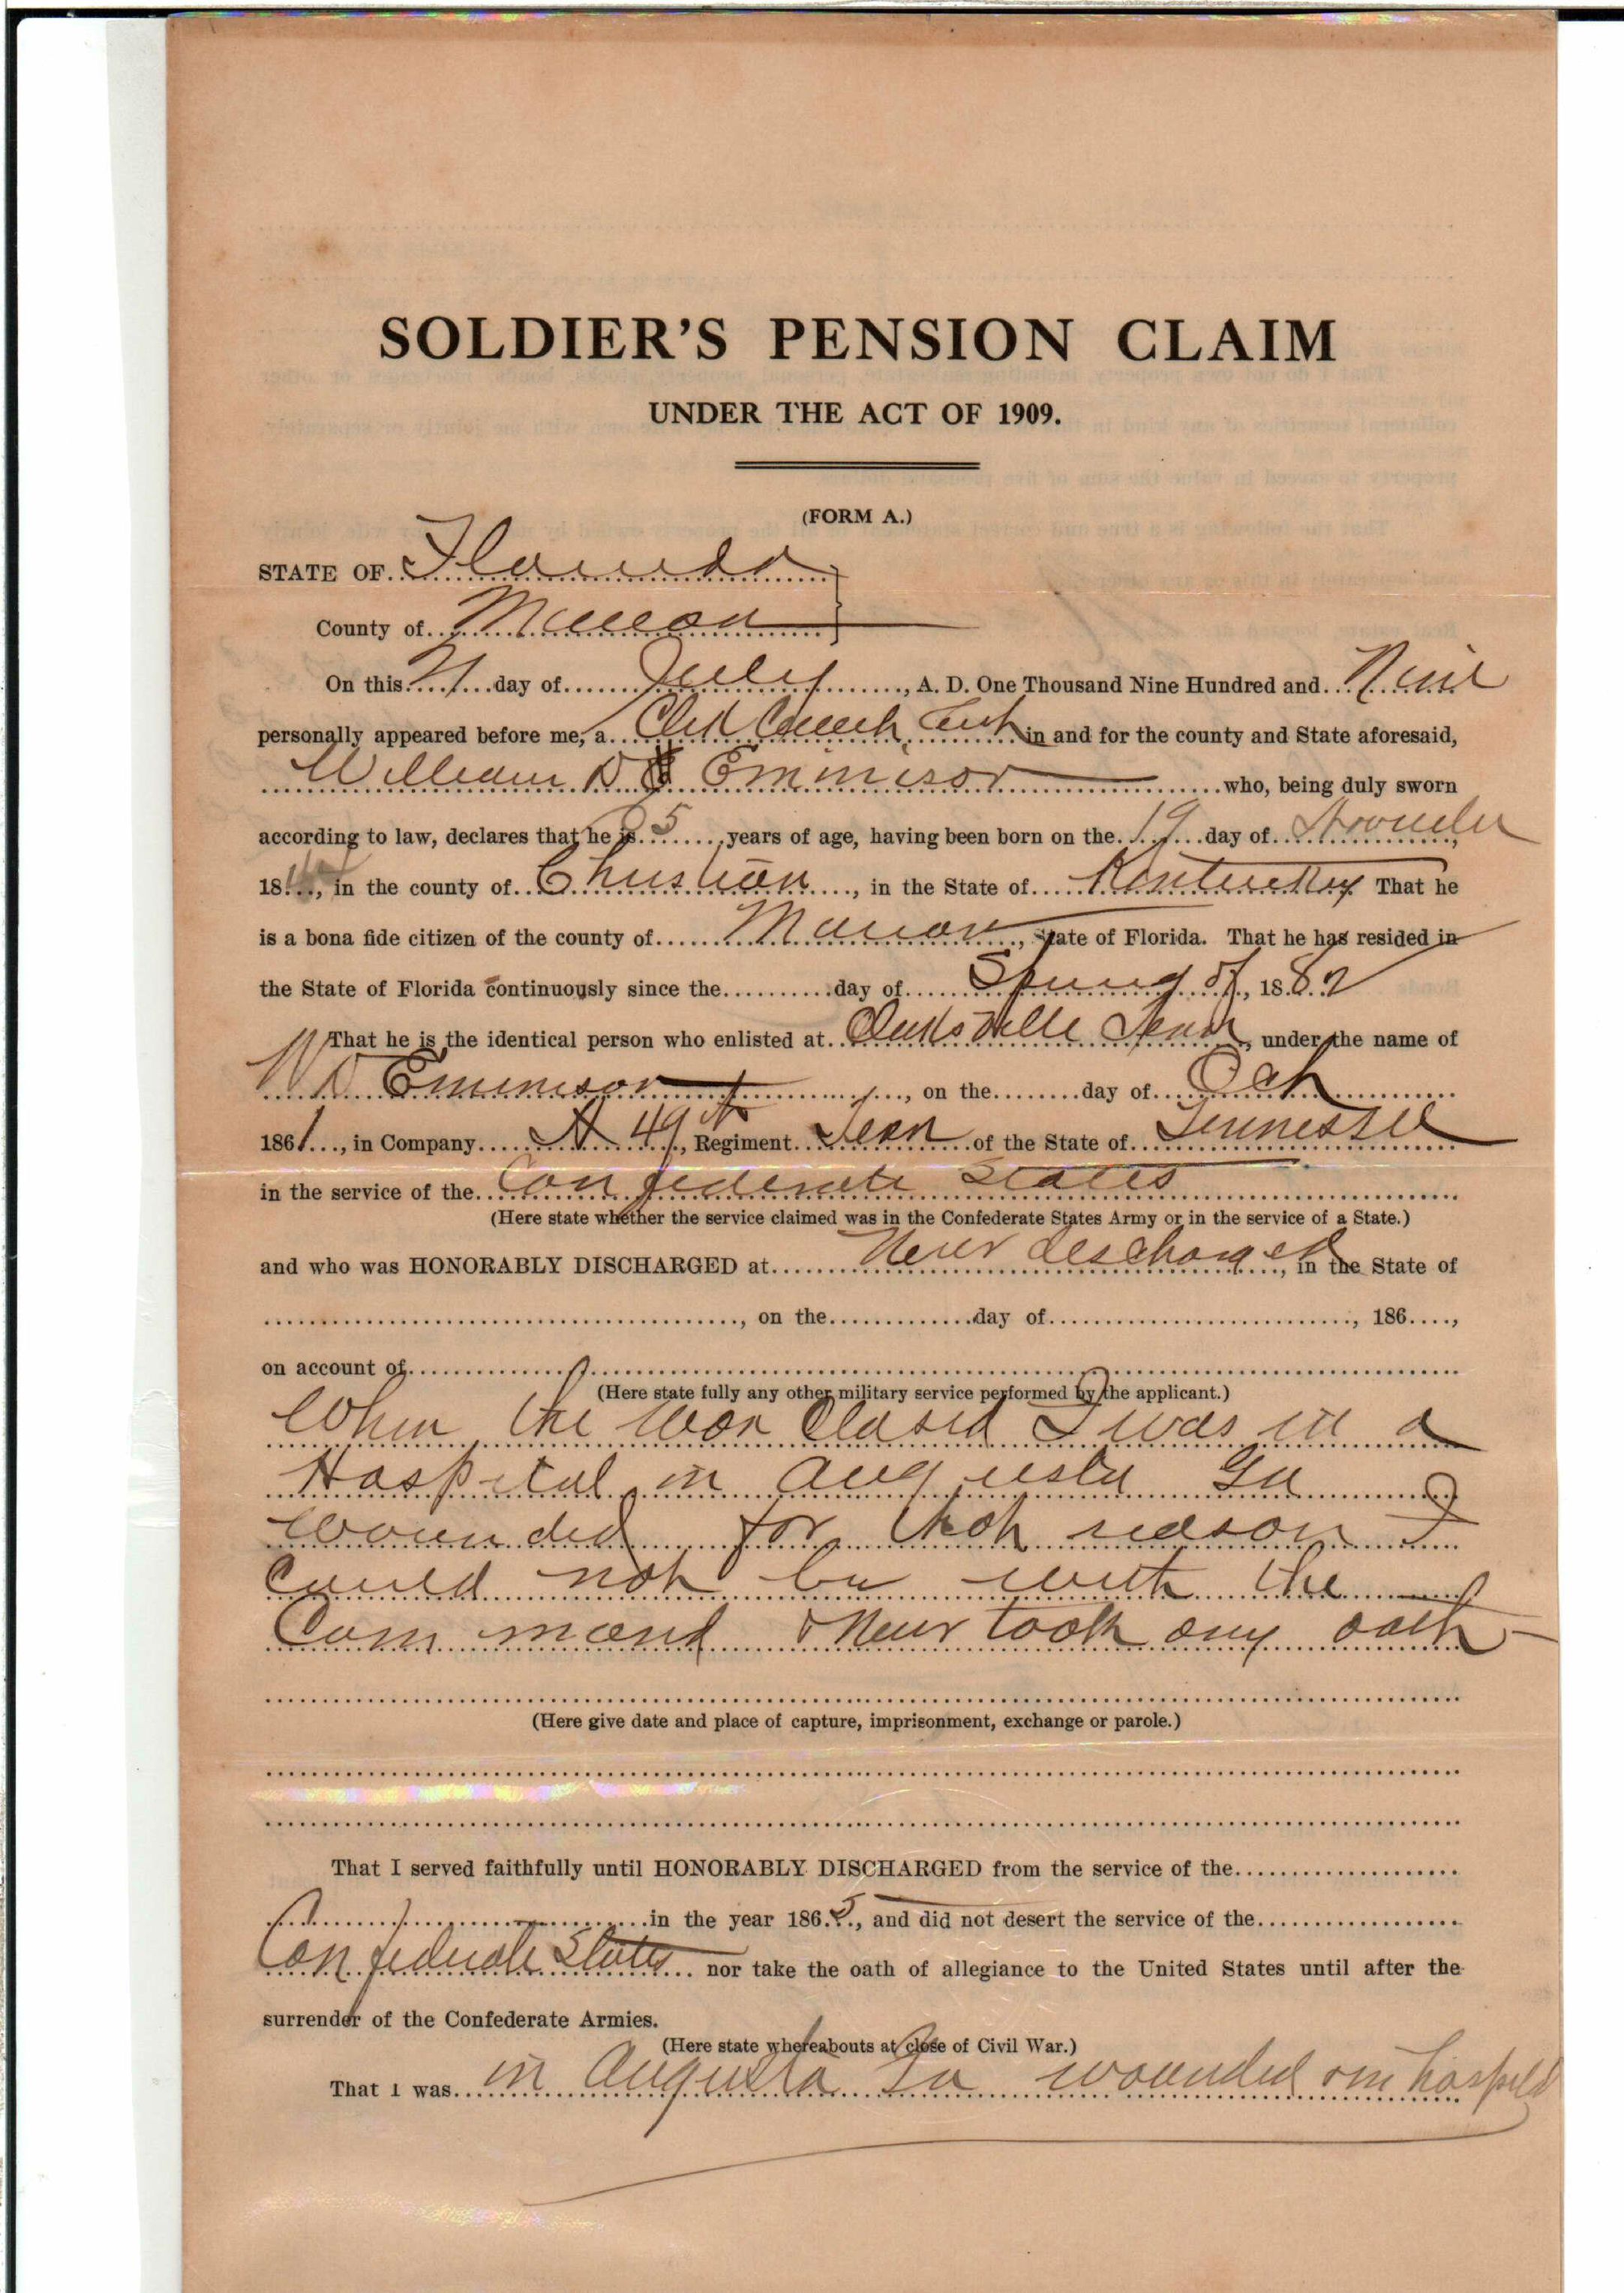 SOLDIER'S PENSION CLAIM
UNDER THE ACT OF 1909.
(FORM A.)
STATE OF Florida
County of Marion
On this 21 day of July, A. D. One Thousand Nine Hundred and Nine
personally appeared before me, a Clerk Circuit Court in and for the county and State aforesaid,
William D Emmison who, being duly sworn
according to law, declares that he is 65 years of age, having been born on the 19 day of
18, in the county of Christian, in the State of Kentuckey That he
is a bona fide citizen of the county of Marion, State of Florida. That he has resided in
the State of Florida continuously since the day of Spring of, 1882
That he is the identical person who enlisted at Tenn, under the name of
W D Emmison, on the day of Oct
1861, in Company A 49th, Regiment Tenn of the State of Tennessee
in the service of the Confederate States
(Here state whether the service claimed was in the Confederate States Army or in the service of a State.)
and who was HONORABLY DISCHARGED at Never discharged, in the State of
, on the day of, 186,
on account of
(Here state fully any other military service performed by the applicant.)
When the War Closed I was in a
Hospital in Augusta Ga
wounded for that reason I
could not be with the
Command & Never took any oath
(Here give date and place of capture, imprisonment, exchange or parole.)
That I served faithfully until HONORABLY DISCHARGED from the service of the
in the year 1865, and did not desert the service of the
Confederate States nor take the oath of allegiance to the United States until after the
surrender of the Confederate Armies.
(Here state whereabouts at close of Civil War.)
That I was in Augusta Ga wounded in hospital